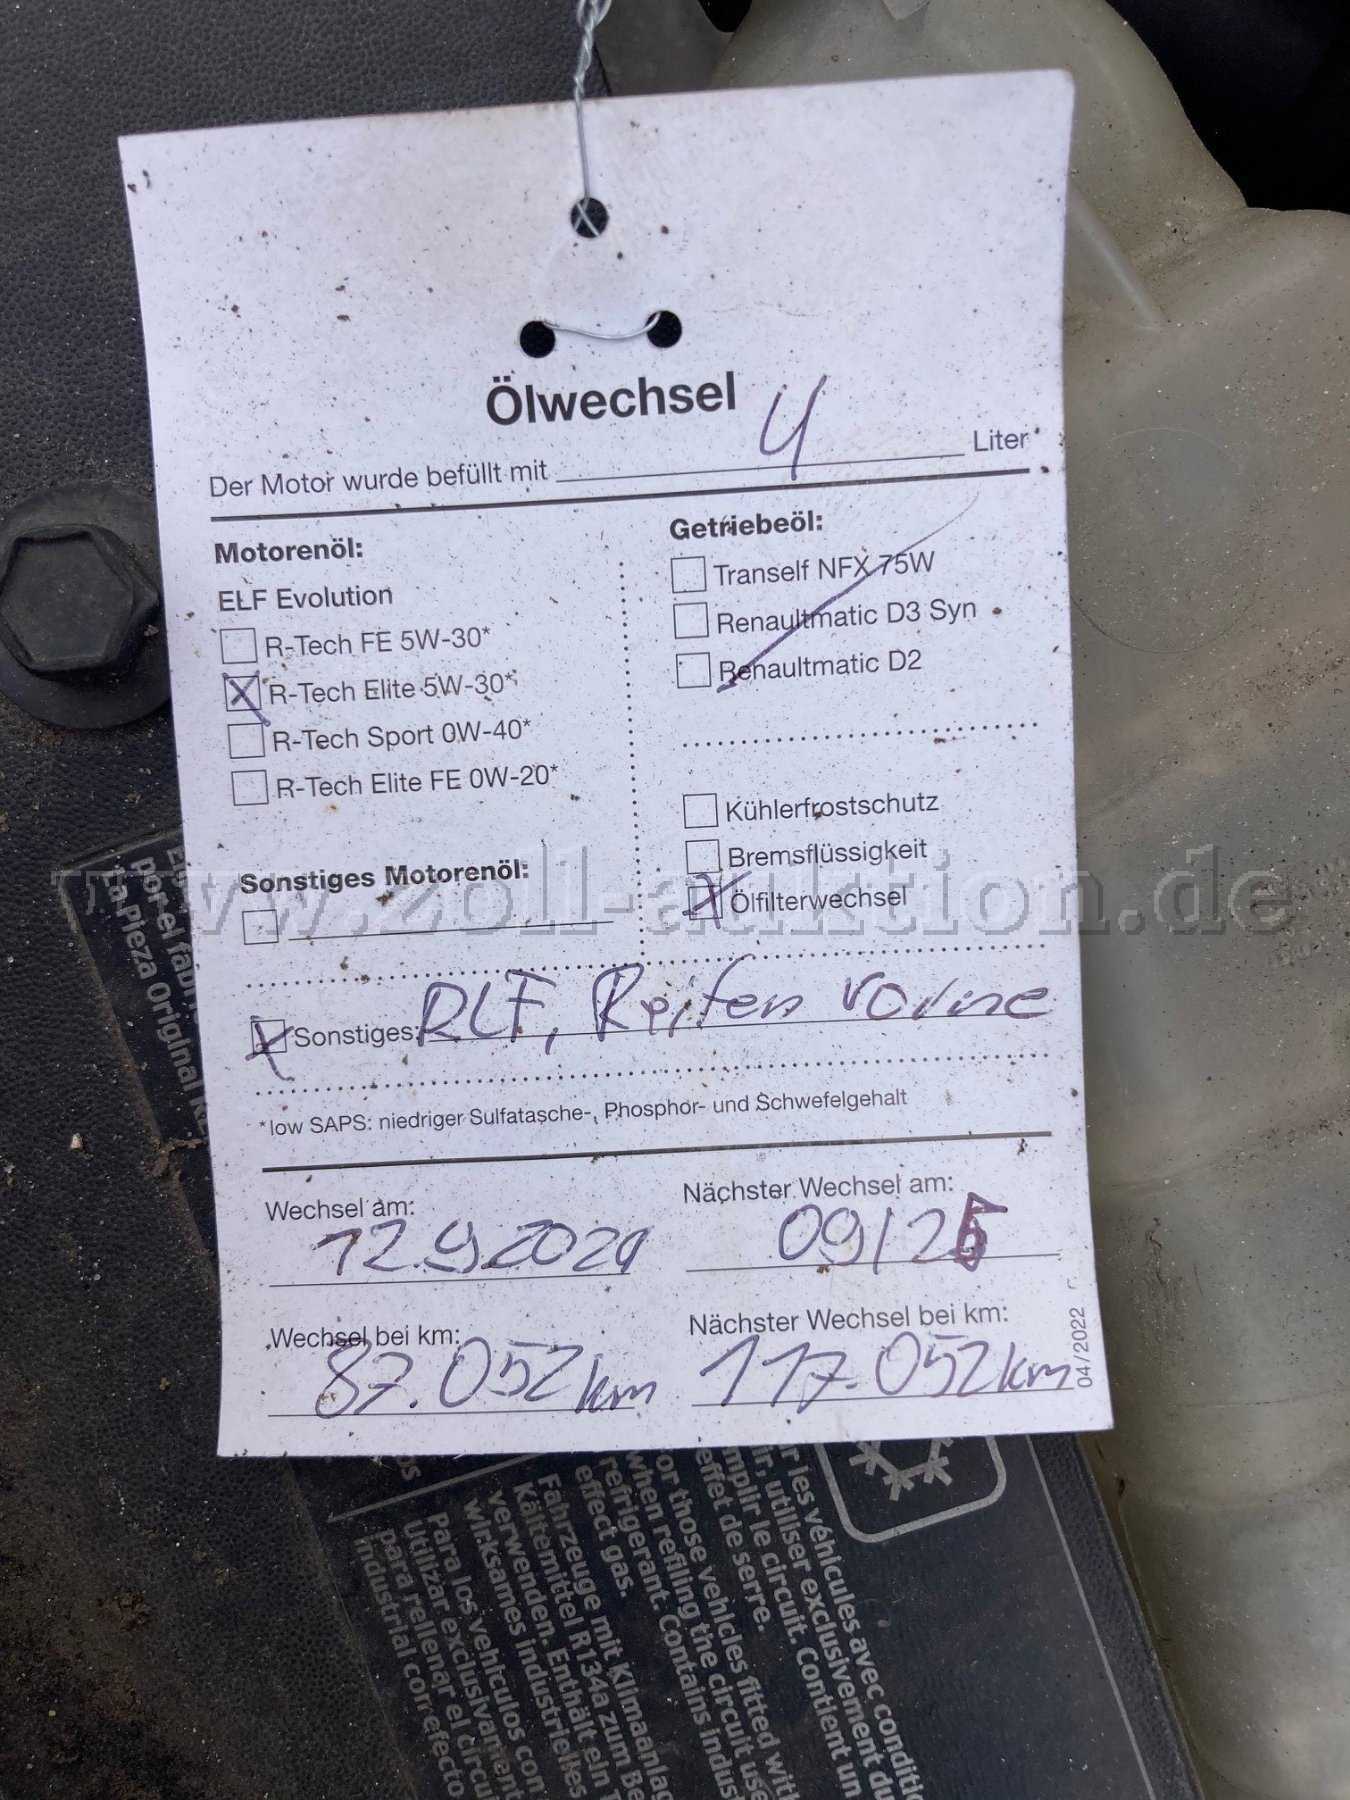 Ölwechsel
Der Motor wurde befüllt mit 4 Liter
Motorenöl:
ELF Evolution
R-Tech FE 5W-30*
R-Tech Elite 5W-30*
R-Tech Sport 0W-40*
R-Tech Elite FE 0W-20*
Sonstiges Motorenöl:
Getriebeöl:
Tranself NFX 75W
Renaultmatic D3 Syn
Renaultmatic D2
Kühlerfrostschutz
Bremsflüssigkeit
Ölfilterwechsel
www.zoll-auktion.de
Sonstiges: RLF, Reifen vorne
*low SAPS: niedriger Sulfatasche-, Phosphor- und Schwefelgehalt
Wechsel am:
12.9.2024
Nächster Wechsel am:
09/25
Wechsel bei km:
87.052 km
Nächster Wechsel bei km:
117.052 km
04/2022
por el
La Pieza Original
les véhicules avec
utiliser exclusivement du
le circuit. Contient un
effet de serre.
or those vehicles fitted with
when refilling the circuit use
refrigerant. Contains
effect gas.
Fahrzeuge mit
Kältemittel R134a zum
verwenden. Enthält ein
wirksames industrielles
Para los vehículos con
utilizar exclusivament
para rellenar el
industrial con efecto